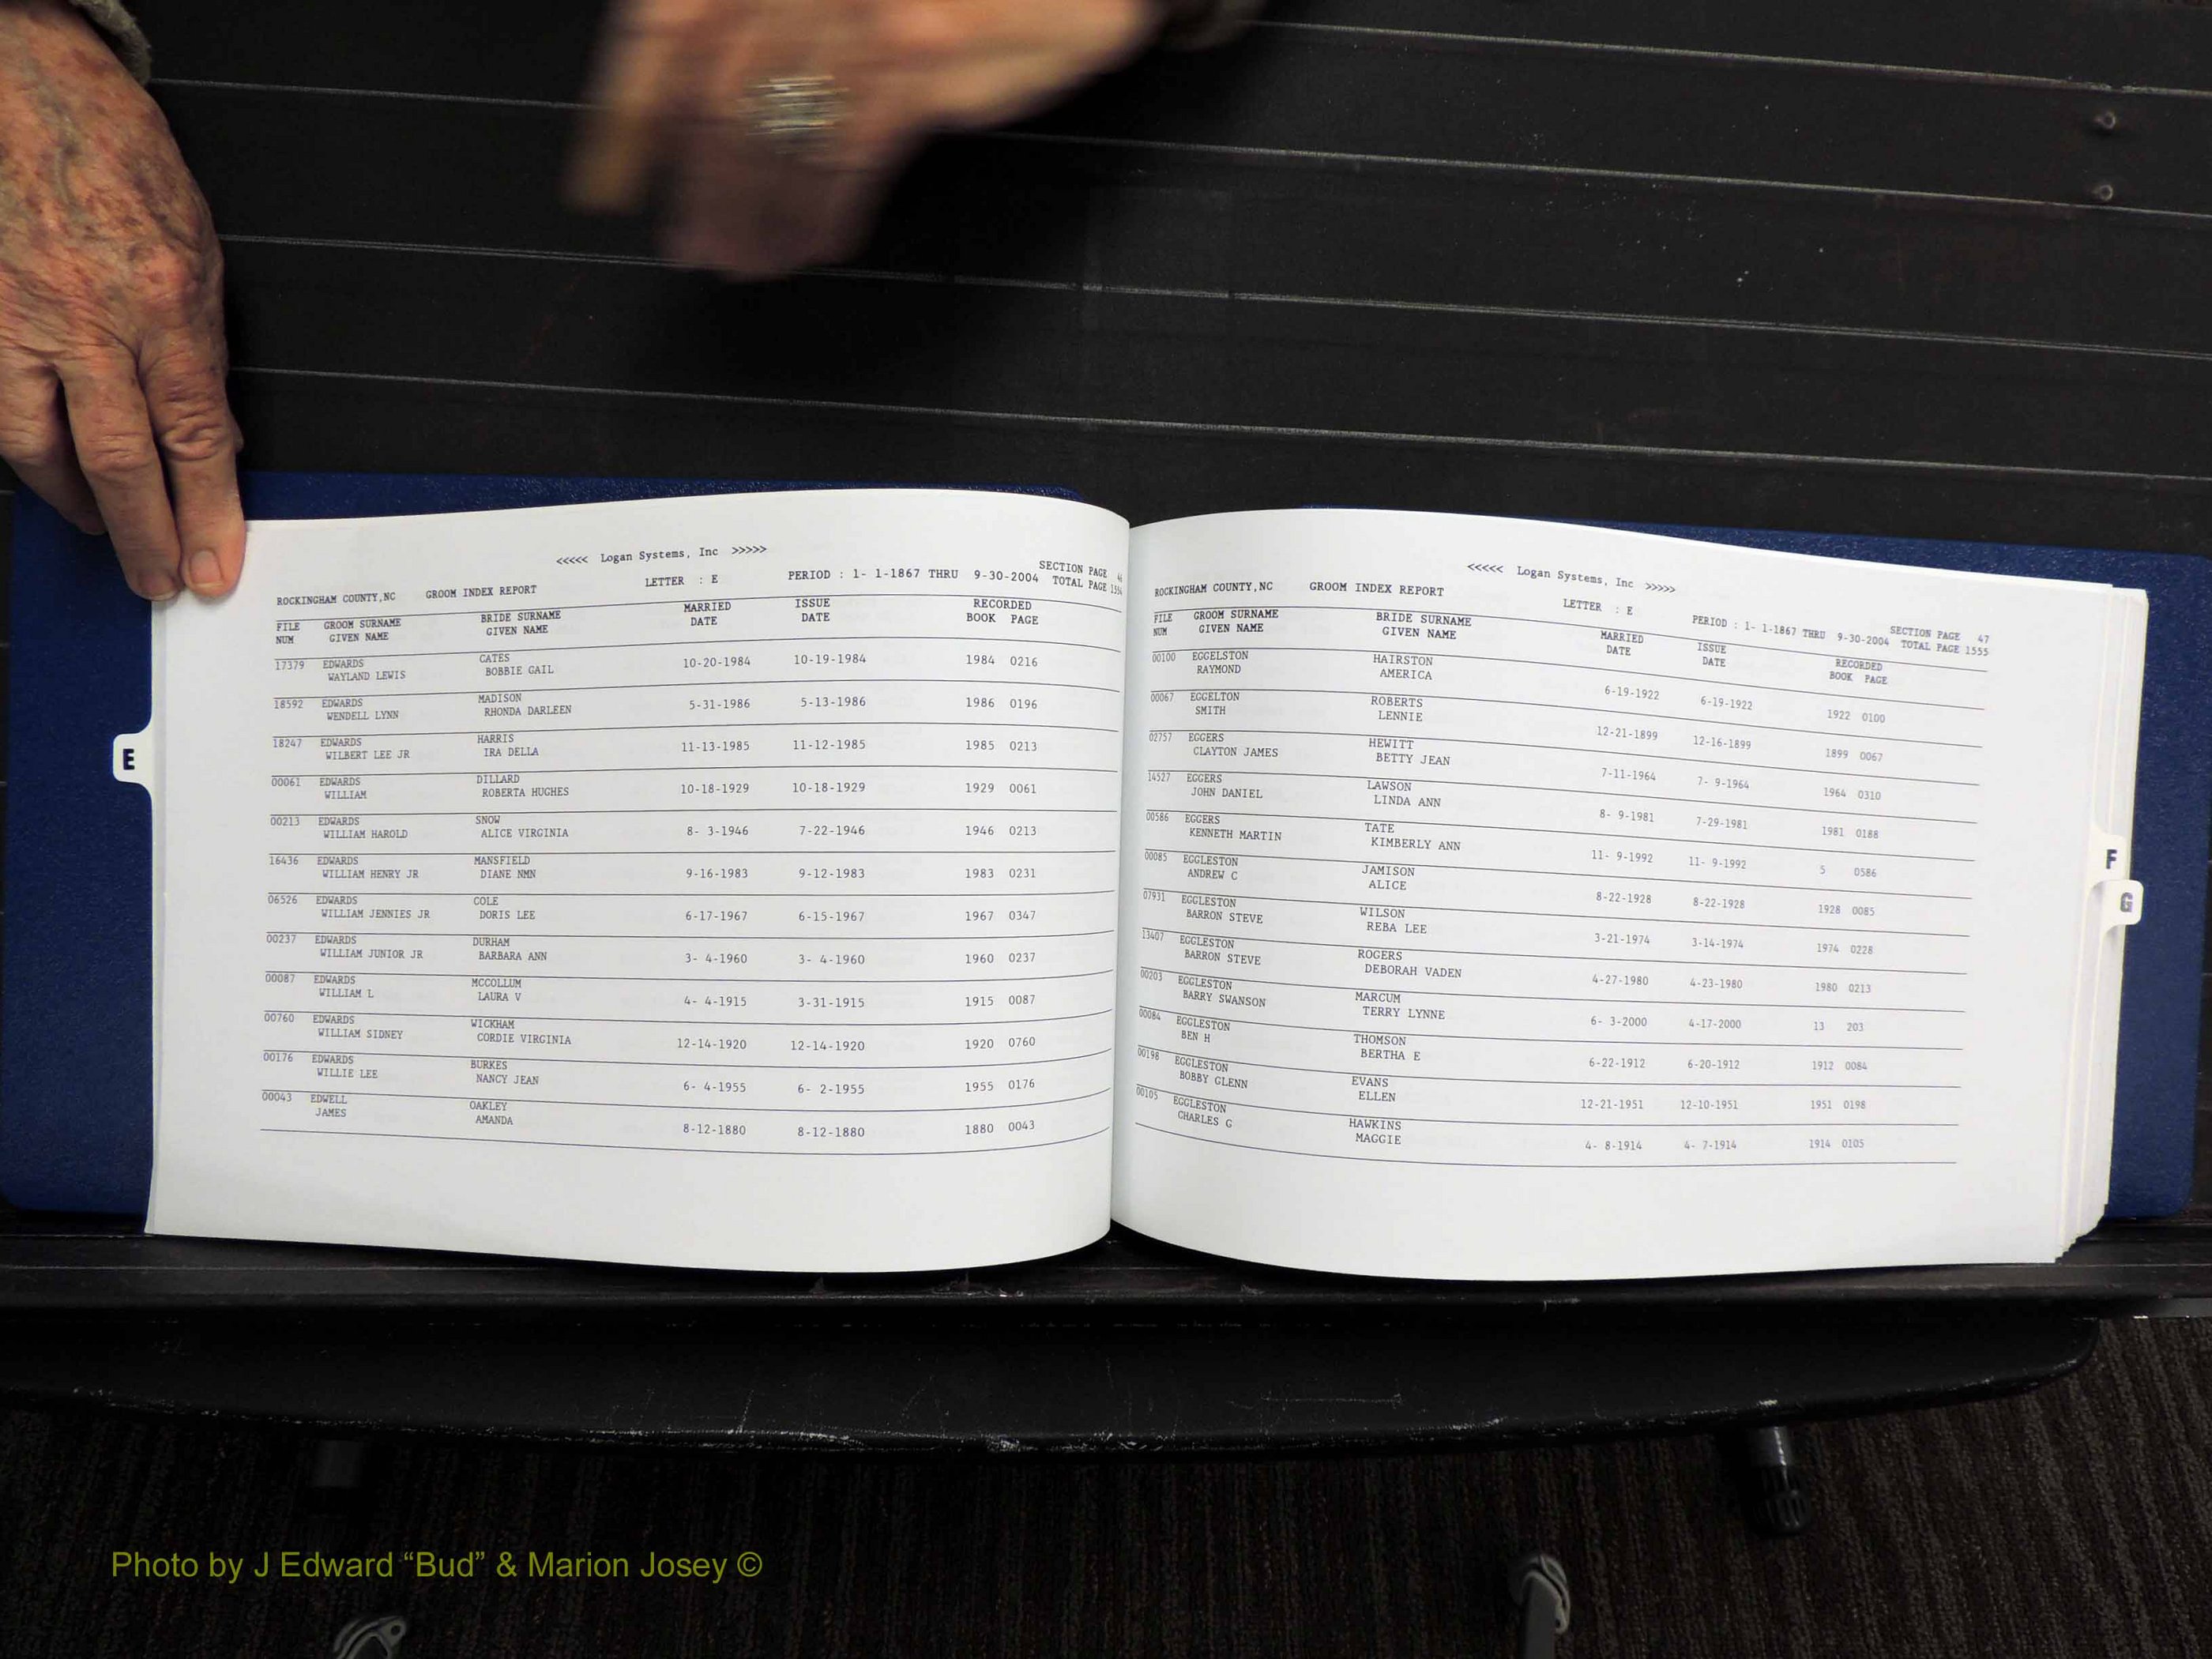 <<<<< Logan Systems, Inc >>>>>
SECTION PAGE 46
ROCKINGHAM COUNTY,NC GROOM INDEX REPORT LETTER : E PERIOD : 1- 1-1867 THRU 9-30-2004 TOTAL PAGE 1554
FILE GROOM SURNAME BRIDE SURNAME MARRIED ISSUE RECORDED
NUM GIVEN NAME GIVEN NAME DATE DATE BOOK PAGE
17379 EDWARDS CATES
WAYLAND LEWIS BOBBIE GAIL 10-20-1984 10-19-1984 1984 0216
18592 EDWARDS MADISON
WENDELL LYNN RHONDA DARLEEN 5-31-1986 5-13-1986 1986 0196
18247 EDWARDS HARRIS
WILBERT LEE JR IRA DELLA 11-13-1985 11-12-1985 1985 0213
00061 EDWARDS DILLARD
WILLIAM ROBERTA HUGHES 10-18-1929 10-18-1929 1929 0061
00213 EDWARDS SNOW
WILLIAM HAROLD ALICE VIRGINIA 8- 3-1946 7-22-1946 1946 0213
16436 EDWARDS MANSFIELD
WILLIAM HENRY JR DIANE NMN 9-16-1983 9-12-1983 1983 0231
06526 EDWARDS COLE
WILLIAM JENNIES JR DORIS LEE 6-17-1967 6-15-1967 1967 0347
00237 EDWARDS DURHAM
WILLIAM JUNIOR JR BARBARA ANN 3- 4-1960 3- 4-1960 1960 0237
00087 EDWARDS MCCOLLUM
WILLIAM L LAURA V 4- 4-1915 3-31-1915 1915 0087
00760 EDWARDS WICKHAM
WILLIAM SIDNEY CORDIE VIRGINIA 12-14-1920 12-14-1920 1920 0760
00176 EDWARDS BURKES
WILLIE LEE NANCY JEAN 6- 4-1955 6- 2-1955 1955 0176
00043 EDWELL OAKLEY
JAMES AMANDA 8-12-1880 8-12-1880 1880 0043
E
<<<<< Logan Systems, Inc >>>>>
SECTION PAGE 47
ROCKINGHAM COUNTY,NC GROOM INDEX REPORT LETTER : E PERIOD : 1- 1-1867 THRU 9-30-2004 TOTAL PAGE 1555
FILE GROOM SURNAME BRIDE SURNAME MARRIED ISSUE RECORDED
NUM GIVEN NAME GIVEN NAME DATE DATE BOOK PAGE
00100 EGGELSTON HAIRSTON
RAYMOND AMERICA 6-19-1922 6-19-1922 1922 0100
00067 EGGELTON ROBERTS
SMITH LENNIE 12-21-1899 12-16-1899 1899 0067
02757 EGGERS HEWITT
CLAYTON JAMES BETTY JEAN 7-11-1964 7- 9-1964 1964 0310
14527 EGGERS LAWSON
JOHN DANIEL LINDA ANN 8- 9-1981 7-29-1981 1981 0188
00586 EGGERS TATE
KENNETH MARTIN KIMBERLY ANN 11- 9-1992 11- 9-1992 5 0586
00085 EGGLESTON JAMISON
ANDREW C ALICE 8-22-1928 8-22-1928 1928 0085
07931 EGGLESTON WILSON
BARRON STEVE REBA LEE 3-21-1974 3-14-1974 1974 0228
13407 EGGLESTON ROGERS
BARRON STEVE DEBORAH VADEN 4-27-1980 4-23-1980 1980 0213
00203 EGGLESTON MARCUM
BARRY SWANSON TERRY LYNNE 6- 3-2000 4-17-2000 13 203
00084 EGGLESTON THOMSON
BEN H BERTHA E 6-22-1912 6-20-1912 1912 0084
00198 EGGLESTON EVANS
BOBBY GLENN ELLEN 12-21-1951 12-10-1951 1951 0198
00105 EGGLESTON HAWKINS
CHARLES G MAGGIE 4- 8-1914 4- 7-1914 1914 0105
F
G
Photo by J Edward “Bud” & Marion Josey ©